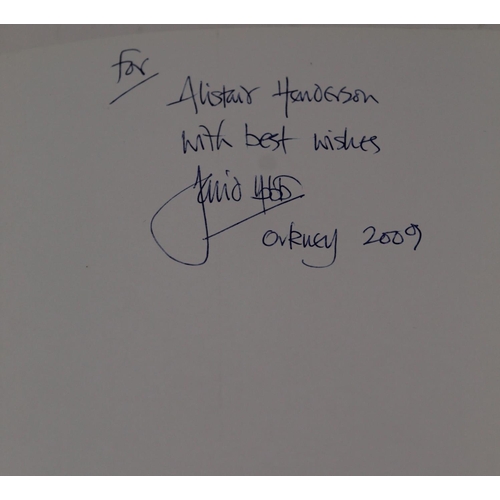 For
Alistair Henderson
with best wishes
Orkney 2009